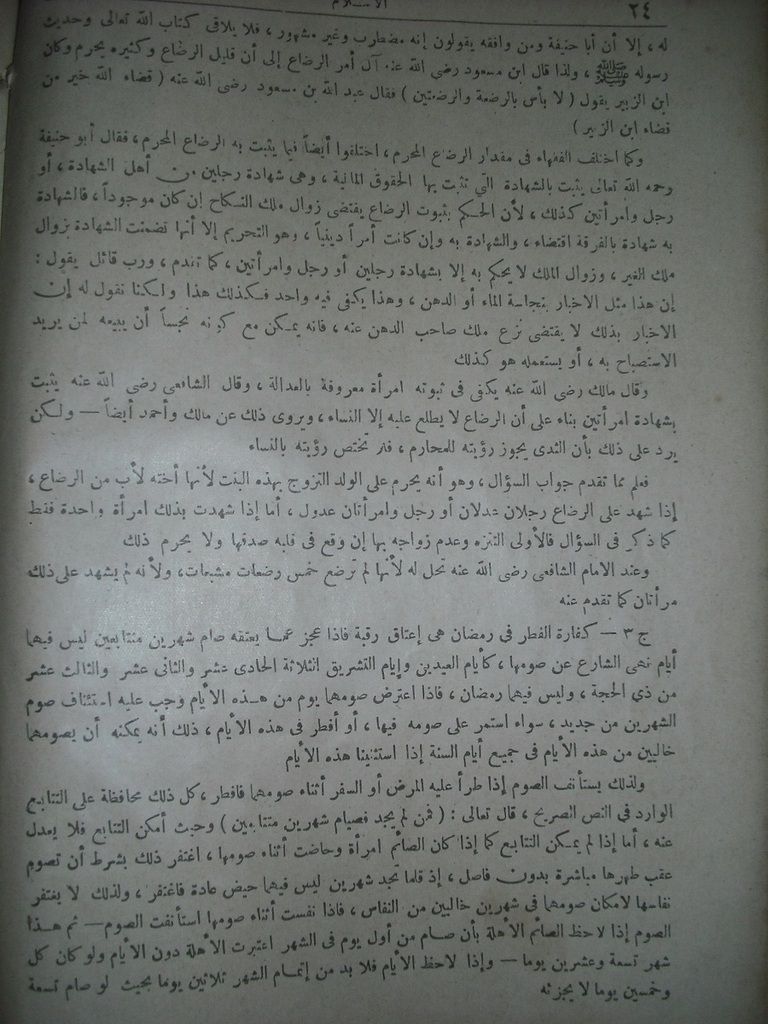 ٢٤
الاسلام
له ، إلا أن أبا حنيفة ومن وافقه يقولون إنه مضطرب وغير مشهور ، فلا يلاقى كتاب الله تعالى وحديث
رسوله ﷺ ، ولذا قال ابن مسعود رضى الله عنه آل أمر الرضاع إلى أن قليل الرضاع وكثيره يحرم وكان
ابن الزبير يقول ( لا بأس بالرضعة والرضعتين ) فقال عبد الله بن مسعود رضى الله عنه ( قضاء الله خير من
قضاء ابن الزبير )
وكما اختلف الفقهاء فى مقدار الرضاع المحرم ، اختلفوا أيضاً فيما يثبت به الرضاع المحرم ، فقال أبو حنيفة
رحمه الله تعالى يثبت بالشهادة التى تثبت بها الحقوق المالية ، وهى شهادة رجلين من أهل الشهادة ، أو
رجل وامرأتين كذلك ، لأن الحكم بثبوت الرضاع يقتضى زوال ملك النكاح إن كان موجوداً ، فالشهادة
به شهادة بالفرقة اقتضاء ، والشهادة به وإن كانت أمراً دينياً ، وهو التحريم إلا أنها تضمنت الشهادة بزوال
ملك الغير ، وزوال الملك لا يحكم به إلا بشهادة رجلين أو رجل وامرأتين ، كما تقدم ، ورب قائل يقول :
إن هذا مثل الاخبار بنجاسة الماء أو الدهن ، وهذا يكفى فيه واحد فكذلك هذا ولكنا نقول له إن
الاخبار بذلك لا يقتضى نزع ملك صاحب الدهن عنه ، فانه يمكن مع كونه نجساً أن يبيعه لمن يريد
الاستصباح به ، أو يستعمله هو كذلك
وقال مالك رضى الله عنه يكفى فى ثبوته امرأة معروفة بالعدالة ، وقال الشافعى رضى الله عنه يثبت
بشهادة امرأتين بناء على أن الرضاع لا يطلع عليه إلا النساء ، ويروى ذلك عن مالك وأحمد أيضاً — ولكن
يرد على ذلك بأن الثدى يجوز رؤيته للمحارم ، فلم تختص رؤيته بالنساء
فعلم مما تقدم جواب السؤال ، وهو أنه يحرم على الولد التزوج بهذه البنت لأنها أخته لأب من الرضاع ،
إذا شهد على الرضاع رجلان عدلان أو رجل وامرأتان عدول ، أما إذا شهدت بذلك امرأة واحدة فقط
كما ذكر فى السؤال فالأولى التنزه وعدم زواجه بها إن وقع فى قلبه صدقها ولا يحرم ذلك
وعند الامام الشافعى رضى الله عنه تحل له لأنها لم ترضع خمس رضعات مشبعات ، ولأنه لم يشهد على ذلك
مرأتان كما تقدم عنه
ج ٣ — كفارة الفطر فى رمضان هى إعتاق رقبة فاذا عجز عما يعتقه صام شهرين متتابعين ليس فيهما
أيام نهى الشارع عن صومها ، كأيام العيدين وإيام التشريق الثلاثة الحادى عشر والثانى عشر والثالث عشر
من ذي الحجة ، وليس فيهما رمضان ، فاذا اعترض صومهما يوم من هذه الأيام وجب عليه استئناف صوم
الشهرين من جديد ، سواء استمر على صومه فيها ، أو أفطر فى هذه الأيام ، ذلك أنه يمكنه أن يصومهما
خاليين من هذه الأيام فى جميع أيام السنة إذا استثنينا هذه الأيام
ولذلك يستأنف الصوم إذا طرأ عليه المرض أو السفر أثناء صومهما فافطر ، كل ذلك محافظة على التتابع
الوارد فى النص الصريح ، قال تعالى : ( فمن لم يجد فصيام شهرين متتابعين ) وحيث أمكن التتابع فلا يعدل
عنه ، أما إذا لم يمكن التتابع كما إذا كان الصائم امرأة وحاضت أثناء صومها ، اغتفر ذلك بشرط أن تصوم
عقب طهرها مباشرة بدون فاصل ، إذ قلما تجد شهرين ليس فيهما حيض عادة فاغتفر ، ولذلك لا يغتفر
نفاسها لامكان صومهما فى شهرين خاليين من النفاس ، فاذا نفست أثناء صومها استأنفت الصوم — ثم هذا
الصوم إذا لاحظ الصائم الأهلة بأن صام من أول يوم فى الشهر اعتبرت الأهلة دون الأيام ولو كان كل
شهر تسعة وعشرين يوما — وإذا لاحظ الأيام فلا بد من إتمام الشهر ثلاثين يوما بحيث لو صام تسعة
وخمسين يوما لا يجزئه